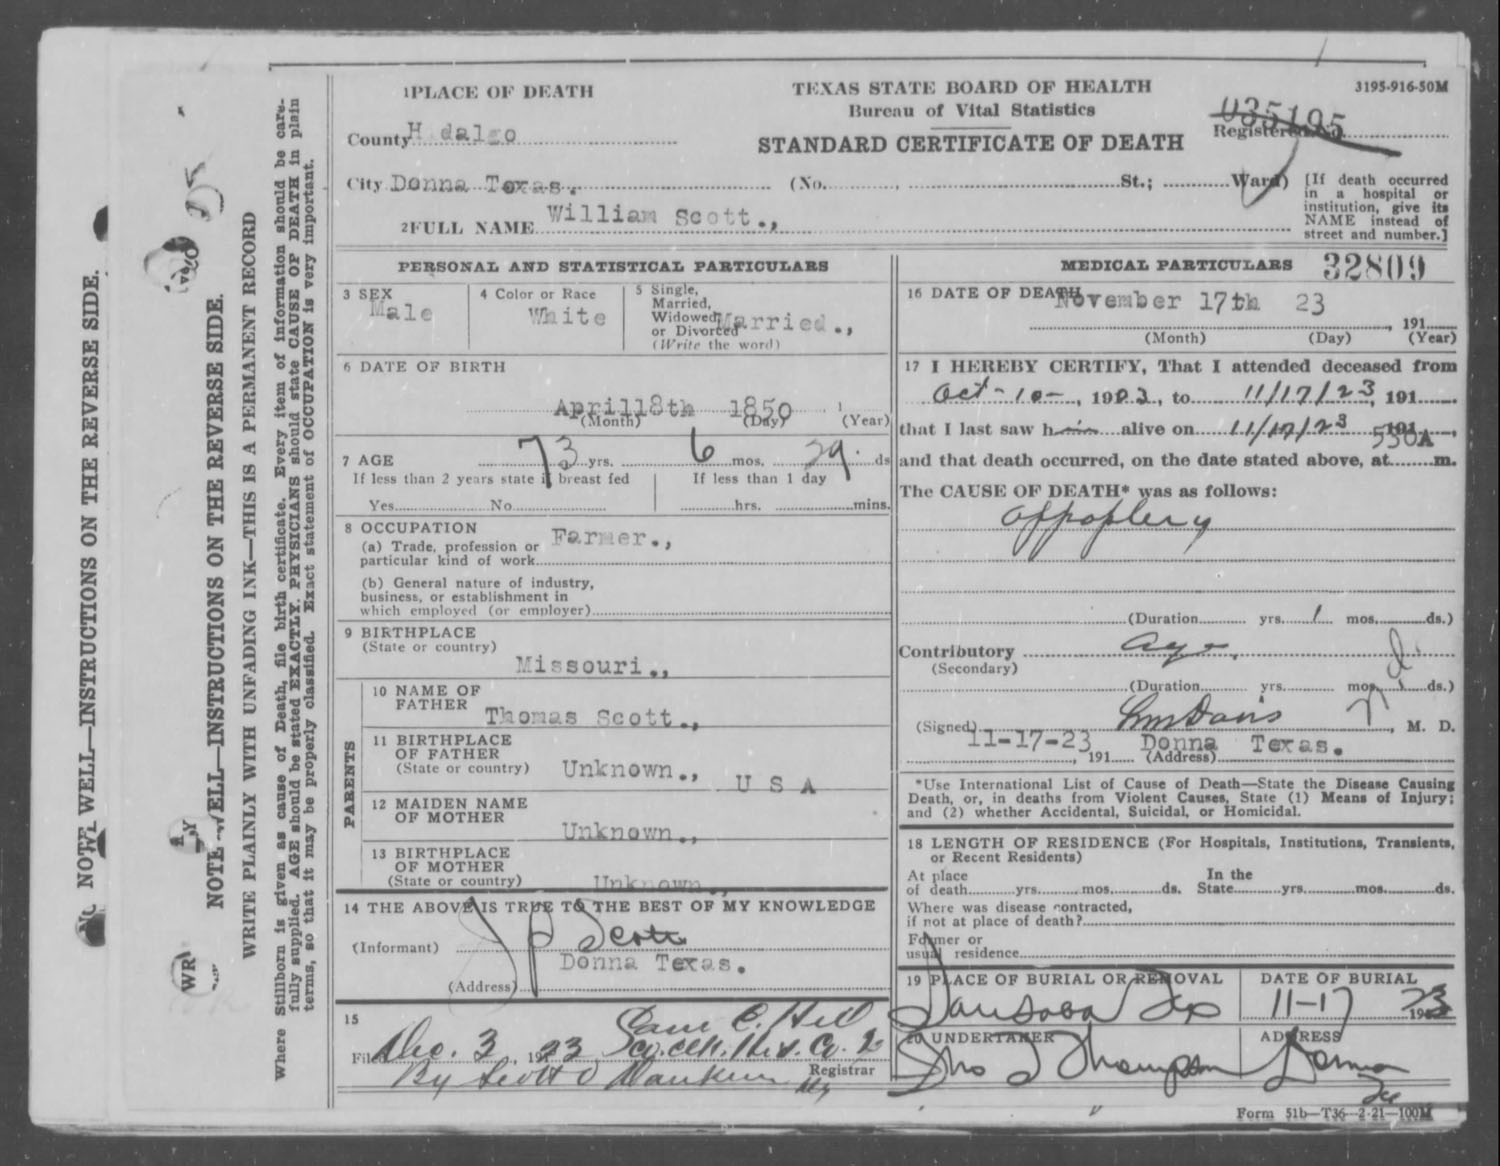 NOTE WELL—INSTRUCTIONS ON THE REVERSE SIDE.
NOTE WELL—INSTRUCTIONS ON THE REVERSE SIDE.
WRITE PLAINLY WITH UNFADING INK—THIS IS A PERMANENT RECORD
Where Stillborn is given as cause of Death, file birth certificate. Every item of information should be care-
fully supplied. AGE should be stated EXACTLY. PHYSICIANS should state CAUSE OF DEATH in plain
terms, so that it may be properly classified. Exact statement of OCCUPATION is very important.
1PLACE OF DEATH
TEXAS STATE BOARD OF HEALTH
3195-916-50M
Bureau of Vital Statistics
035195
County H dalgo
STANDARD CERTIFICATE OF DEATH
Registered No.
City Donna Texas. (No. , St.; Ward)
[If death occurred
in a hospital or
institution, give its
NAME instead of
street and number.]
2FULL NAME William Scott.,
PERSONAL AND STATISTICAL PARTICULARS
3 SEX Male
4 Color or Race White
5 Single,
Married,
Widowed,
or Divorced Married.,
(Write the word)
6 DATE OF BIRTH
April 18th 1850 1
(Month) (Day) (Year)
7 AGE 73 yrs. 6 mos. 29. ds
If less than 2 years state if breast fed
If less than 1 day
Yes No hrs. mins.
8 OCCUPATION
(a) Trade, profession or
particular kind of work Farmer.,
(b) General nature of industry,
business, or establishment in
which employed (or employer)
9 BIRTHPLACE
(State or country)
Missouri.,
PARENTS
10 NAME OF
FATHER Thomas Scott.,
11 BIRTHPLACE
OF FATHER
(State or country) Unknown., U S A
12 MAIDEN NAME
OF MOTHER
Unknown.,
13 BIRTHPLACE
OF MOTHER
(State or country) Unknown.,
14 THE ABOVE IS TRUE TO THE BEST OF MY KNOWLEDGE
(Informant) J P Scott
Donna Texas.
(Address)
15
Sam C. Hill
Filed Dec. 3, 1923 Co. Clk. Hid. Co.
By Scott Registrar
MEDICAL PARTICULARS 32809
16 DATE OF DEATH November 17th 23
, 191
(Month) (Day) (Year)
17 I HEREBY CERTIFY, That I attended deceased from
Oct-10-, 1923, to 11/17/23, 191
that I last saw him alive on 11/17/23 191,
530A
and that death occurred, on the date stated above, at m.
The CAUSE OF DEATH* was as follows:
Appoplexy
(Duration yrs. 1 mos. ds.)
Contributory age
(Secondary)
(Duration yrs. mos. ds.)
(Signed) Davis, M. D.
11-17-23, 191 Donna Texas.
(Address)
*Use International List of Cause of Death—State the Disease Causing
Death, or, in deaths from Violent Causes, State (1) Means of Injury;
and (2) whether Accidental, Suicidal, or Homicidal.
18 LENGTH OF RESIDENCE (For Hospitals, Institutions, Transients,
or Recent Residents)
At place In the
of death yrs. mos. ds. State yrs. mos. ds.
Where was disease contracted,
if not at place of death?
Former or
usual residence
19 PLACE OF BURIAL OR REMOVAL
DATE OF BURIAL
Tex
11-17 23
20 UNDERTAKER
ADDRESS
Jno J Thompson
Donna
Tex
Form 51b—T36—2-21—100M